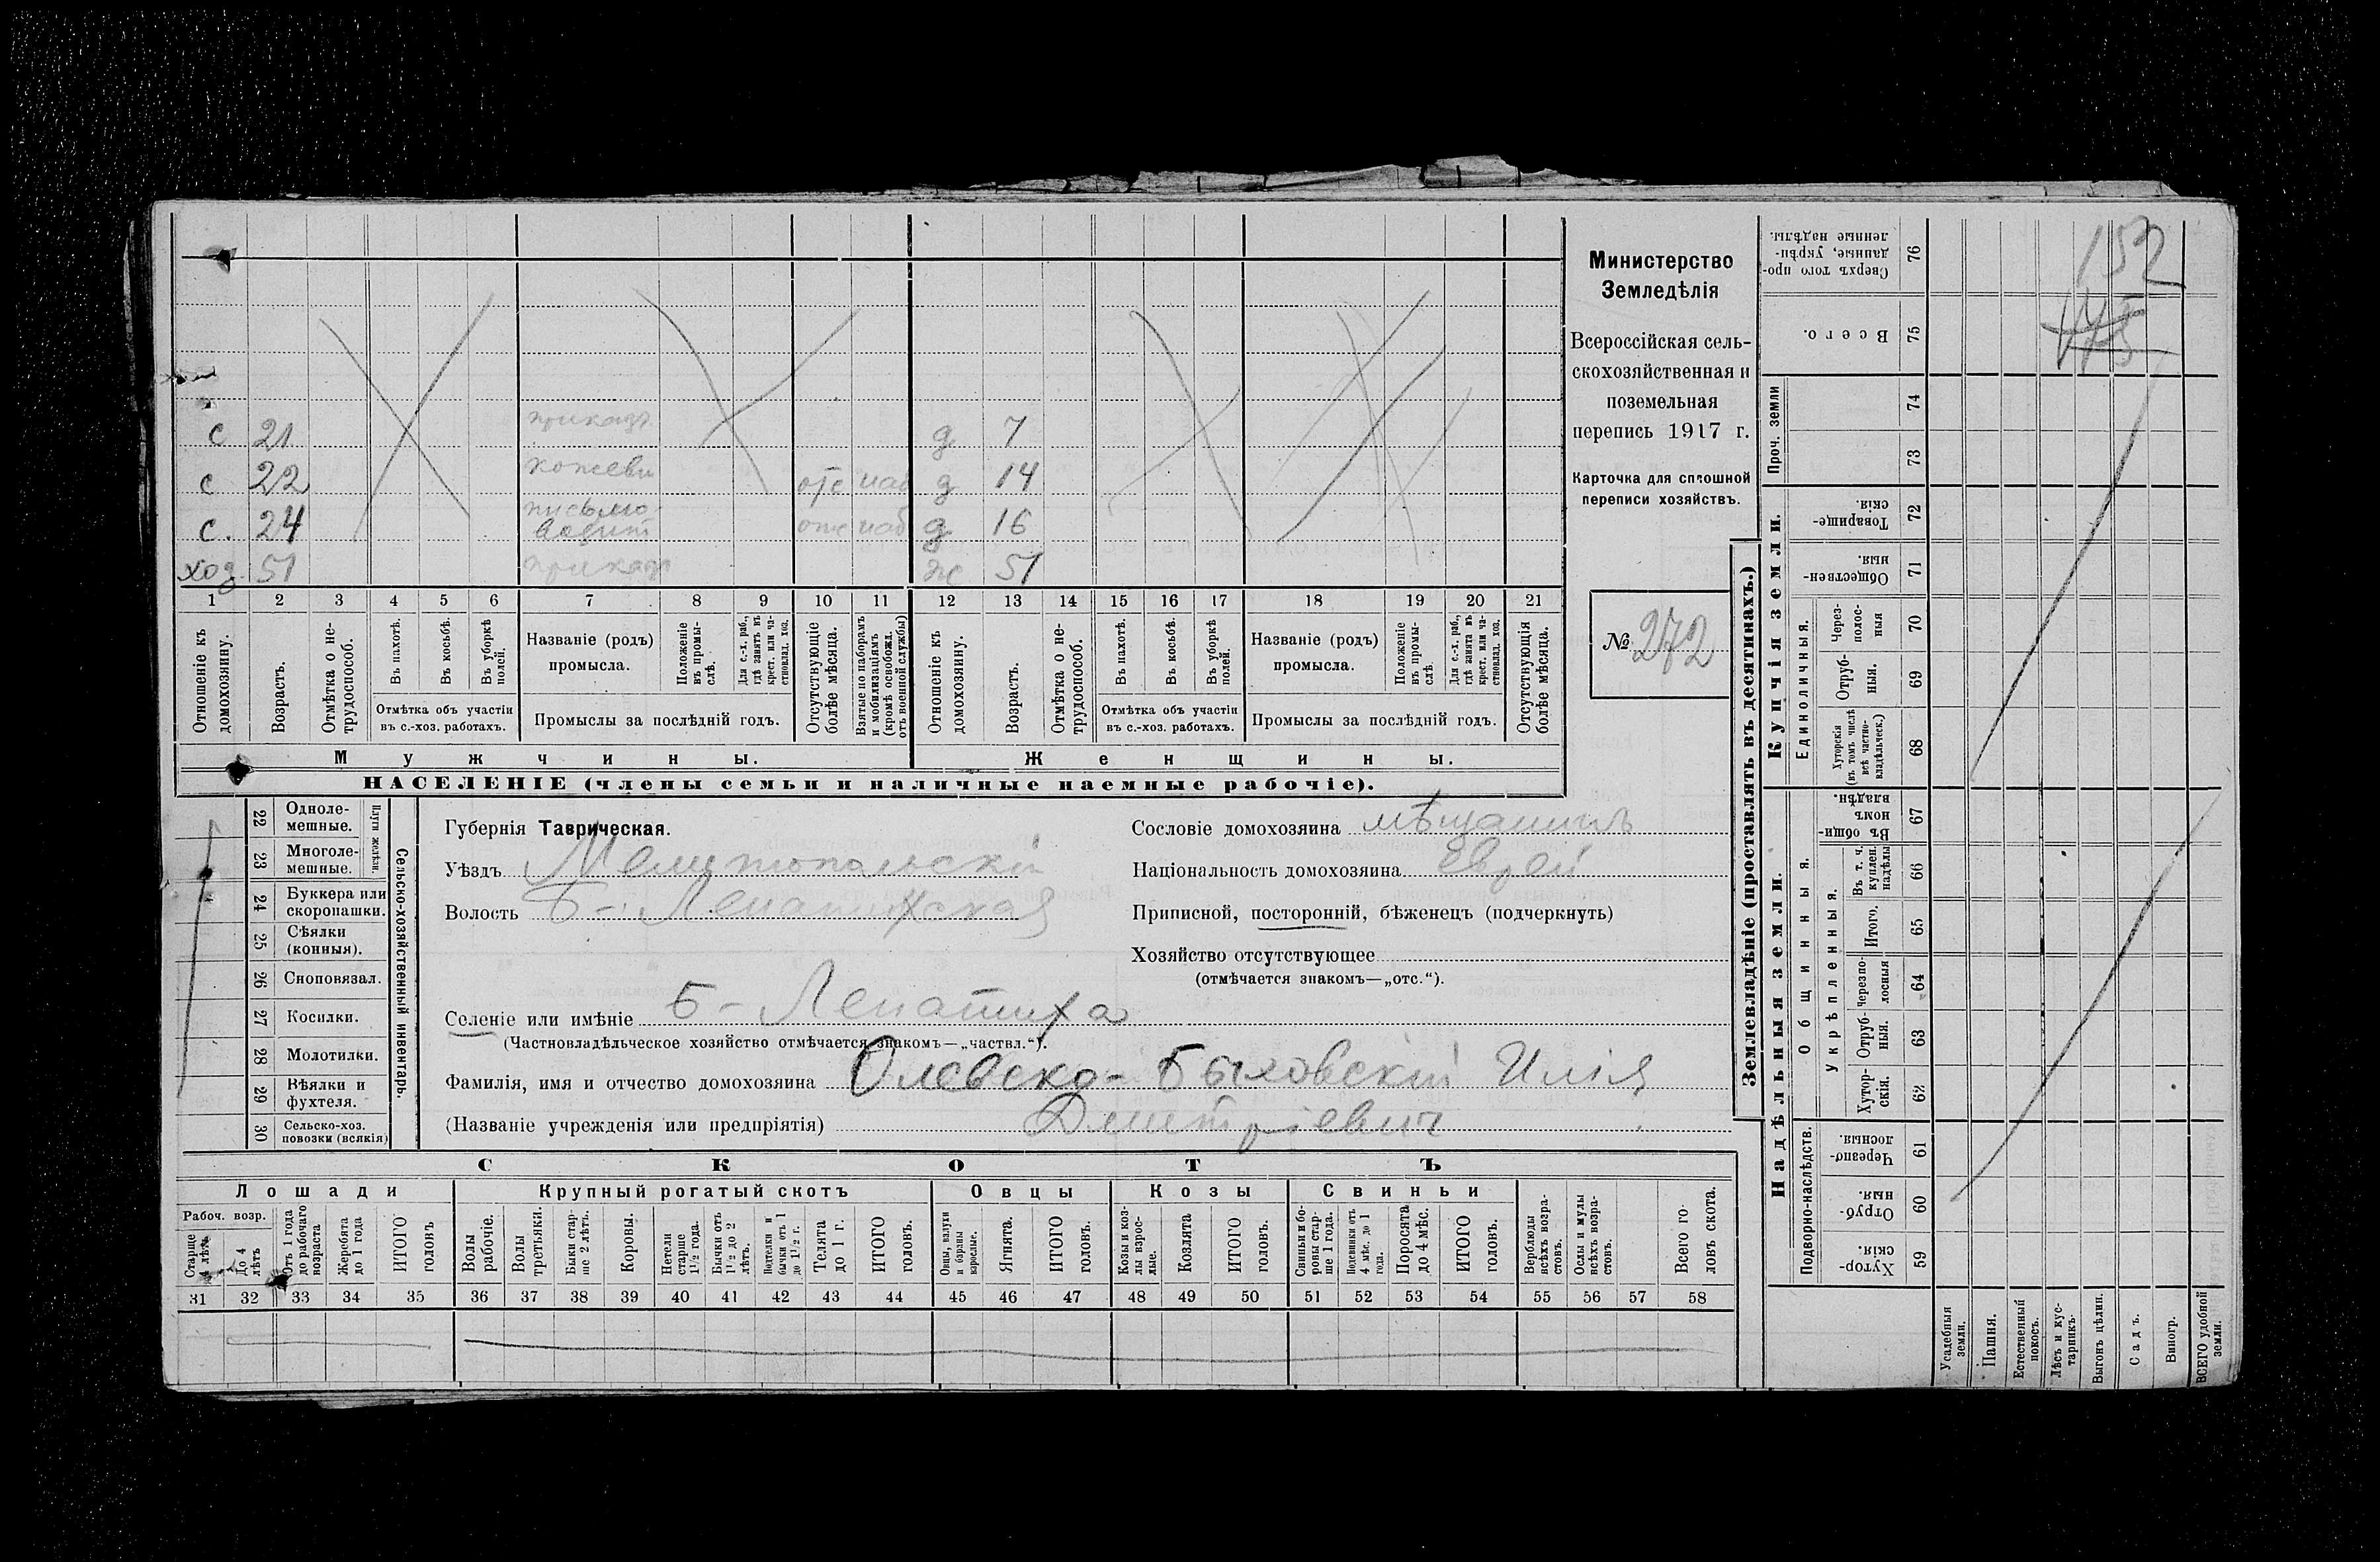 Министерство
Земледѣлія
Всероссійская сель-
скохозяйственная и
поземельная
перепись 1917 г.
Карточка для сплошной
переписи хозяйствъ.
№ 272
152
175
с 21 приказ д 7
с 22 кожеви отс наб д 14
с. 24 письмо-
водит отс наб д 16
хоз. 51 приказ ж 51
1 2 3 4 5 6 7 8 9 10 11 12 13 14 15 16 17 18 19 20 21
Отношеніе къ домохозяину.
Возрастъ.
Отмѣтка о не-трудоспособ.
Въ пахотѣ.
Въ косьбѣ.
Въ уборкѣ полей.
Отмѣтка объ участіи
въ с.-хоз. работахъ.
Названіе (родъ)
промысла.
Положеніе въ промы-слѣ.
Для с.-х. раб., гдѣ занятъ въ крест. или ча-стновлад. хоз.
Промыслы за послѣдній годъ.
Отсутствующіе болѣе мѣсяца.
Взятые по наборамъ и мобилизаціямъ (кромѣ освобожд. отъ военной службы)
Отношеніе къ домохозяину.
Возрастъ.
Отмѣтка о не-трудоспособ.
Въ пахотѣ.
Въ косьбѣ.
Въ уборкѣ полей.
Отмѣтка объ участіи
въ с.-хоз. работахъ.
Названіе (родъ)
промысла.
Положеніе въ промы-слѣ.
Для с.-х. раб., гдѣ занята въ крест. или ча-стновлад. хоз.
Промыслы за послѣдній годъ.
Отсутствующія болѣе мѣсяца.
Мужчины.
Женщины.
НАСЕЛЕНІЕ (члены семьи и наличные наемные рабочіе).
Сельско-хозяйственный инвентарь.
Плуги желѣзн.
22 Одноле-мешные.
23 Многоле-мешные.
24 Буккера или скоропашки.
25 Сѣялки (конныя).
26 Сноповязал.
27 Косилки.
28 Молотилки.
29 Вѣялки и фухтеля.
30 Сельско-хоз. повозки (всякія)
Губернія Таврическая.
Уѣздъ Мелитопольскій
Волость Б-Лепатихская
Сословіе домохозяина мѣщанинъ
Національность домохозяина Еврей
Приписной, посторонній, бѣженецъ (подчеркнуть)
Хозяйство отсутствующее
(отмѣчается знакомъ—„отс.“).
Селеніе или имѣніе Б-Лепатиха
(Частновладѣльческое хозяйство отмѣчается знакомъ—„частвл.“).
Фамилія, имя и отчество домохозяина Олевско-Быховскій Илія
(Названіе учрежденія или предпріятія) Дмитріевич
СКОТЪ
Лошади
Крупный рогатый скотъ
Овцы
Козы
Свиньи
Рабоч. возр.
Старше 4 лѣтъ
До 4 лѣтъ
Отъ 1 года до рабочаго возраста
Жеребята до 1 года
ИТОГО головъ
Волы рабочіе.
Волы третьяки.
Быки стар-ше 2 лѣтъ.
Коровы.
Нетели старше 1½ года.
Бычки отъ 1½ до 2 лѣтъ.
Подтелки и бычки отъ 1 до 1½ г.
Телята до 1 г.
ИТОГО головъ.
Овцы, валухи и бараны взрослые.
Ягнята.
ИТОГО головъ.
Козы и коз-лы взрос-лые.
Козлята
ИТОГО головъ.
Свиньи и бо-ровы стар-ше 1 года.
Подсвинки отъ 4 мѣс. до 1 года.
Поросята до 4 мѣс.
ИТОГО головъ.
Верблюды всѣхъ возра-стовъ.
Ослы и мулы всѣхъ возра-стовъ.
Всего го-ловъ скота.
31 32 33 34 35 36 37 38 39 40 41 42 43 44 45 46 47 48 49 50 51 52 53 54 55 56 57 58
Землевладѣніе (проставлять въ десятинахъ.)
Надѣльныя земли.
Купчія земли.
Проч. земли
Подворно-наслѣдств.
Общинныя.
Укрѣпленныя.
Единоличныя.
Сверхъ того про-данные, укрѣп-ленные надѣлы. 76
Всего. 75
74
73
Товарище-скія. 72
Обществен-ныя. 71
Через-полос-ныя 70
Отруб-ныя. 69
Хуторскія (въ томъ числѣ всѣ частно-владѣльческ.) 68
Въ общи-номъ владѣн. 67
Въ т. ч. куплен. надѣлы 66
Итого. 65
Черезпо-лосныя 64
Отруб-ныя. 63
Хутор-скія. 62
Черезпо-лосныя. 61
Отруб-ныя. 60
Хутор-скія. 59
Усадебныя земли.
Пашня.
Естественный покосъ.
Лѣсъ и кус-тарникъ.
Выгонъ цѣлин.
Садъ.
Виногр.
ВСЕГО удобной земли.